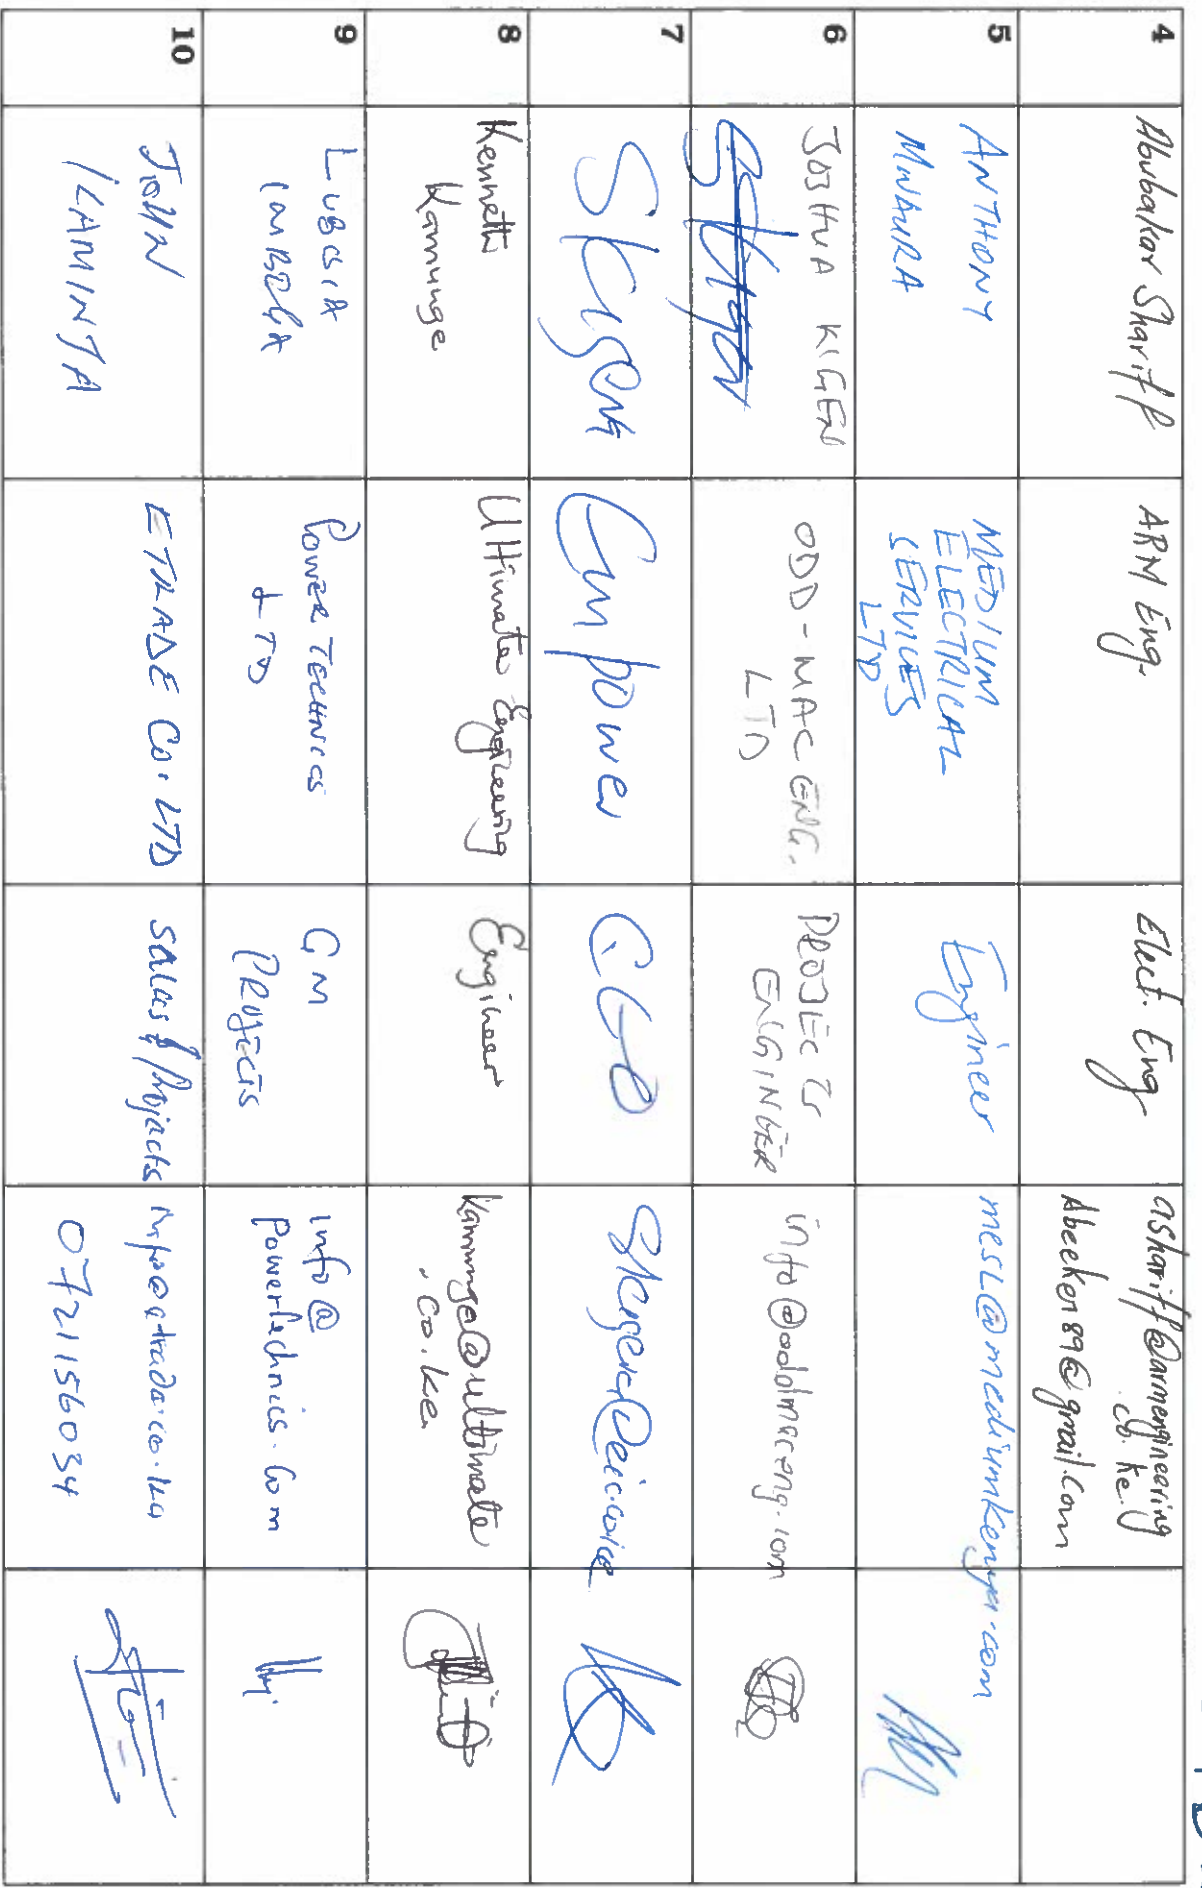 4
Abubakar Shariff
ARM Eng.
Elect. Eng
ashariff@armengineering
.co.ke
Abeeker89@gmail.com
5
ANTHONY
MWAURA
MEDIUM
ELECTRICAL
SERVICES
LTD
Engineer
mesl@mediumkenya.com
6
JOSHUA KIGEN
ODD-MAC ENG.
LTD
PROJECTS
ENGINEER
info@oddmaceng.com
7
Empower
8
Kenneth
Kamunge
Ultimate Engineering
Engineer
Kamunge@ultimate
.co.ke
9
POWER TECHNICS
LTD
GM
PROJECTS
info@
powertechnics.com
10
JOHN
KAMINJA
ETRADE CO. LTD
Sales & Projects
0721156034